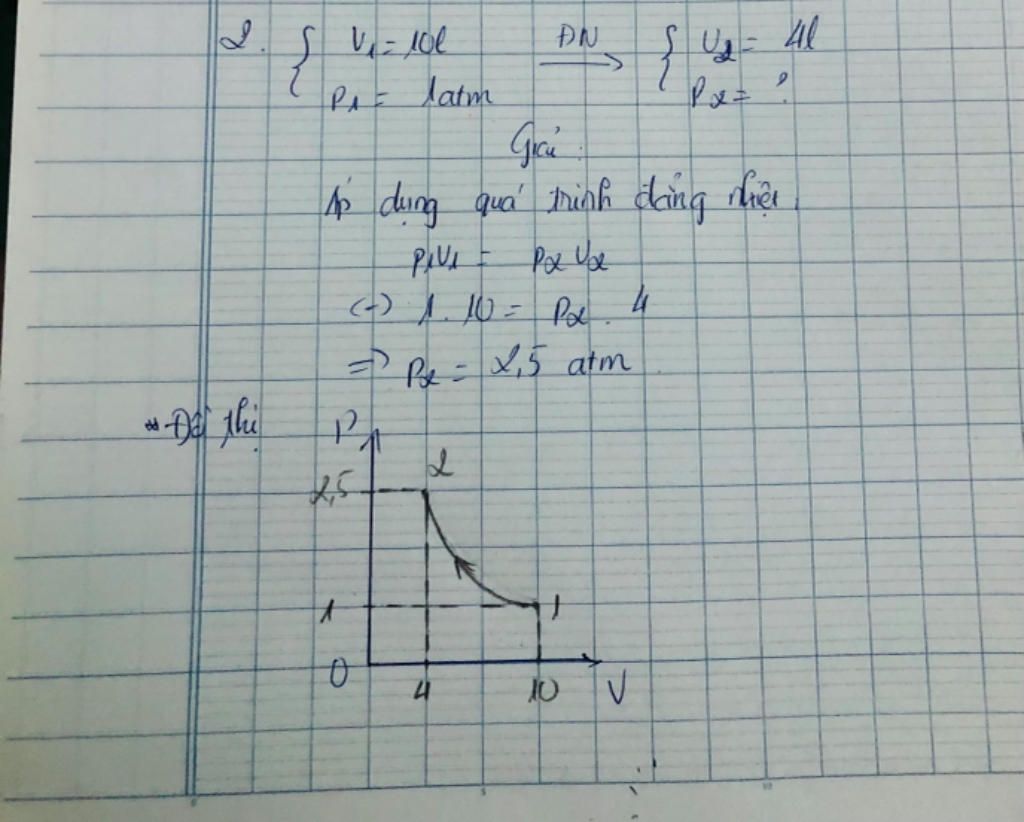 2. { V₁ = 10l ĐN → { V₂ = 4l
P₁ = 1atm P₂ = ?
Giải
Áp dụng quá trình đẳng nhiệt
P₁V₁ = P₂V₂
(-) 1.10 = P₂.4
=> P₂ = 2,5 atm
* Đồ thị
P
2
2,5
1 1
0 4 10 V